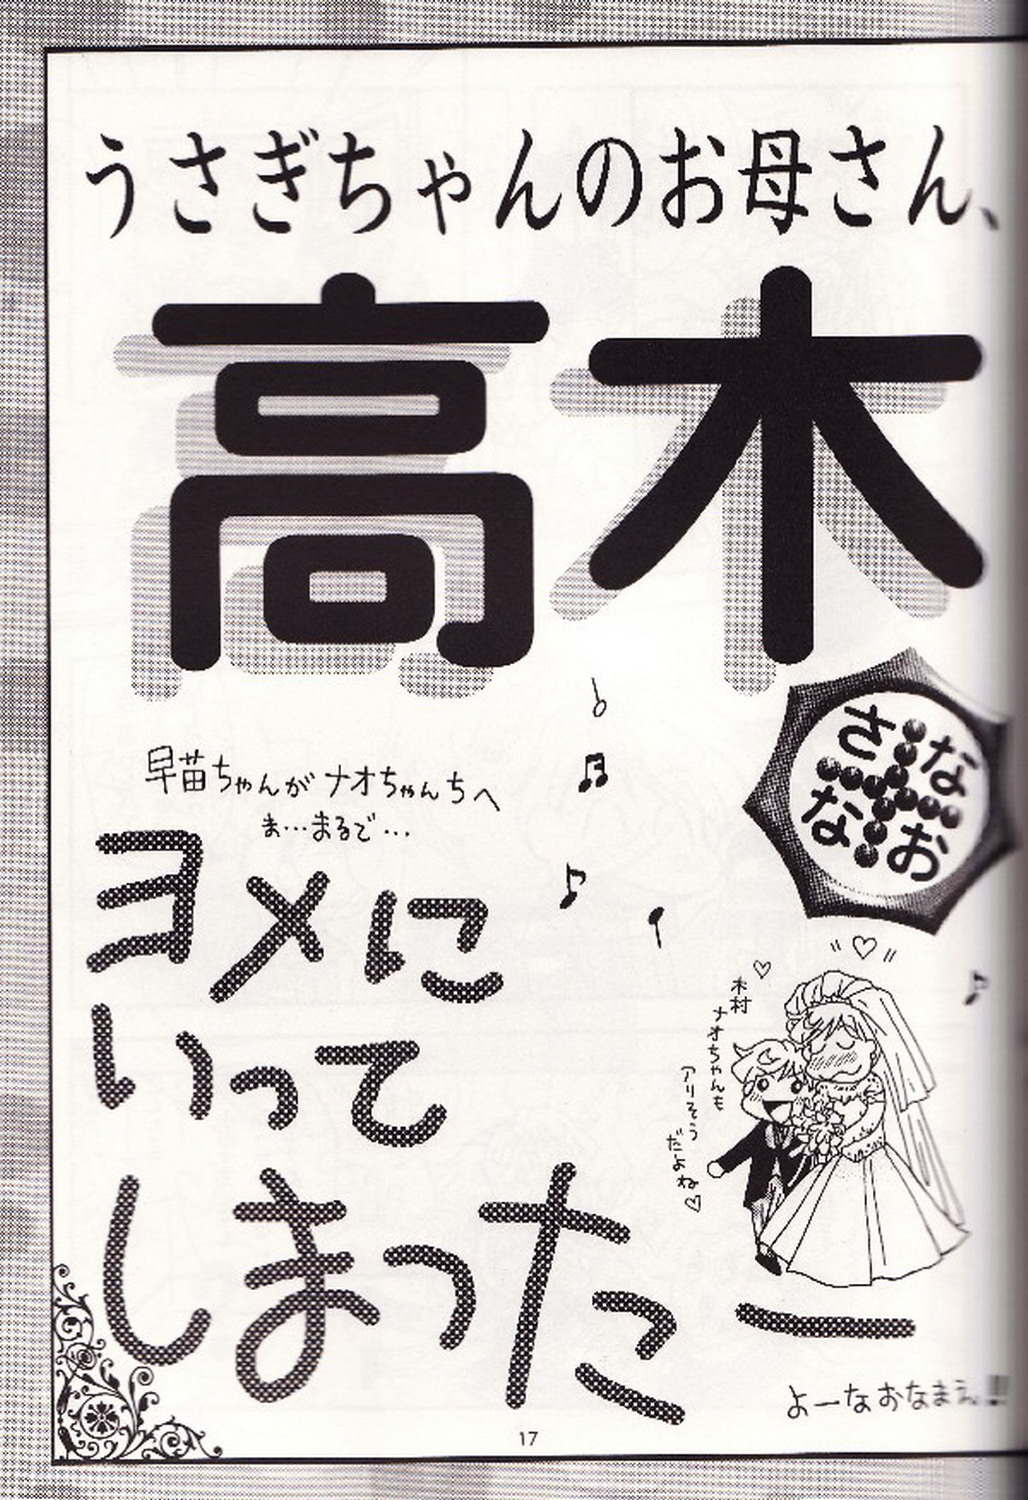 うさぎちゃんのお母さん、
高木
さなな
なお
早苗ちゃんがナオちゃんちへ
ま…まるで…
ヨメに
いって
しまったー
木村
ナオちゃんも
アリそう
だよね♡
よーなおなまえ!!
17